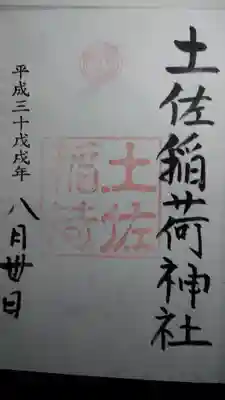 土佐稲荷神社
土佐
稲荷
平成三十戊戌年
八月卅日